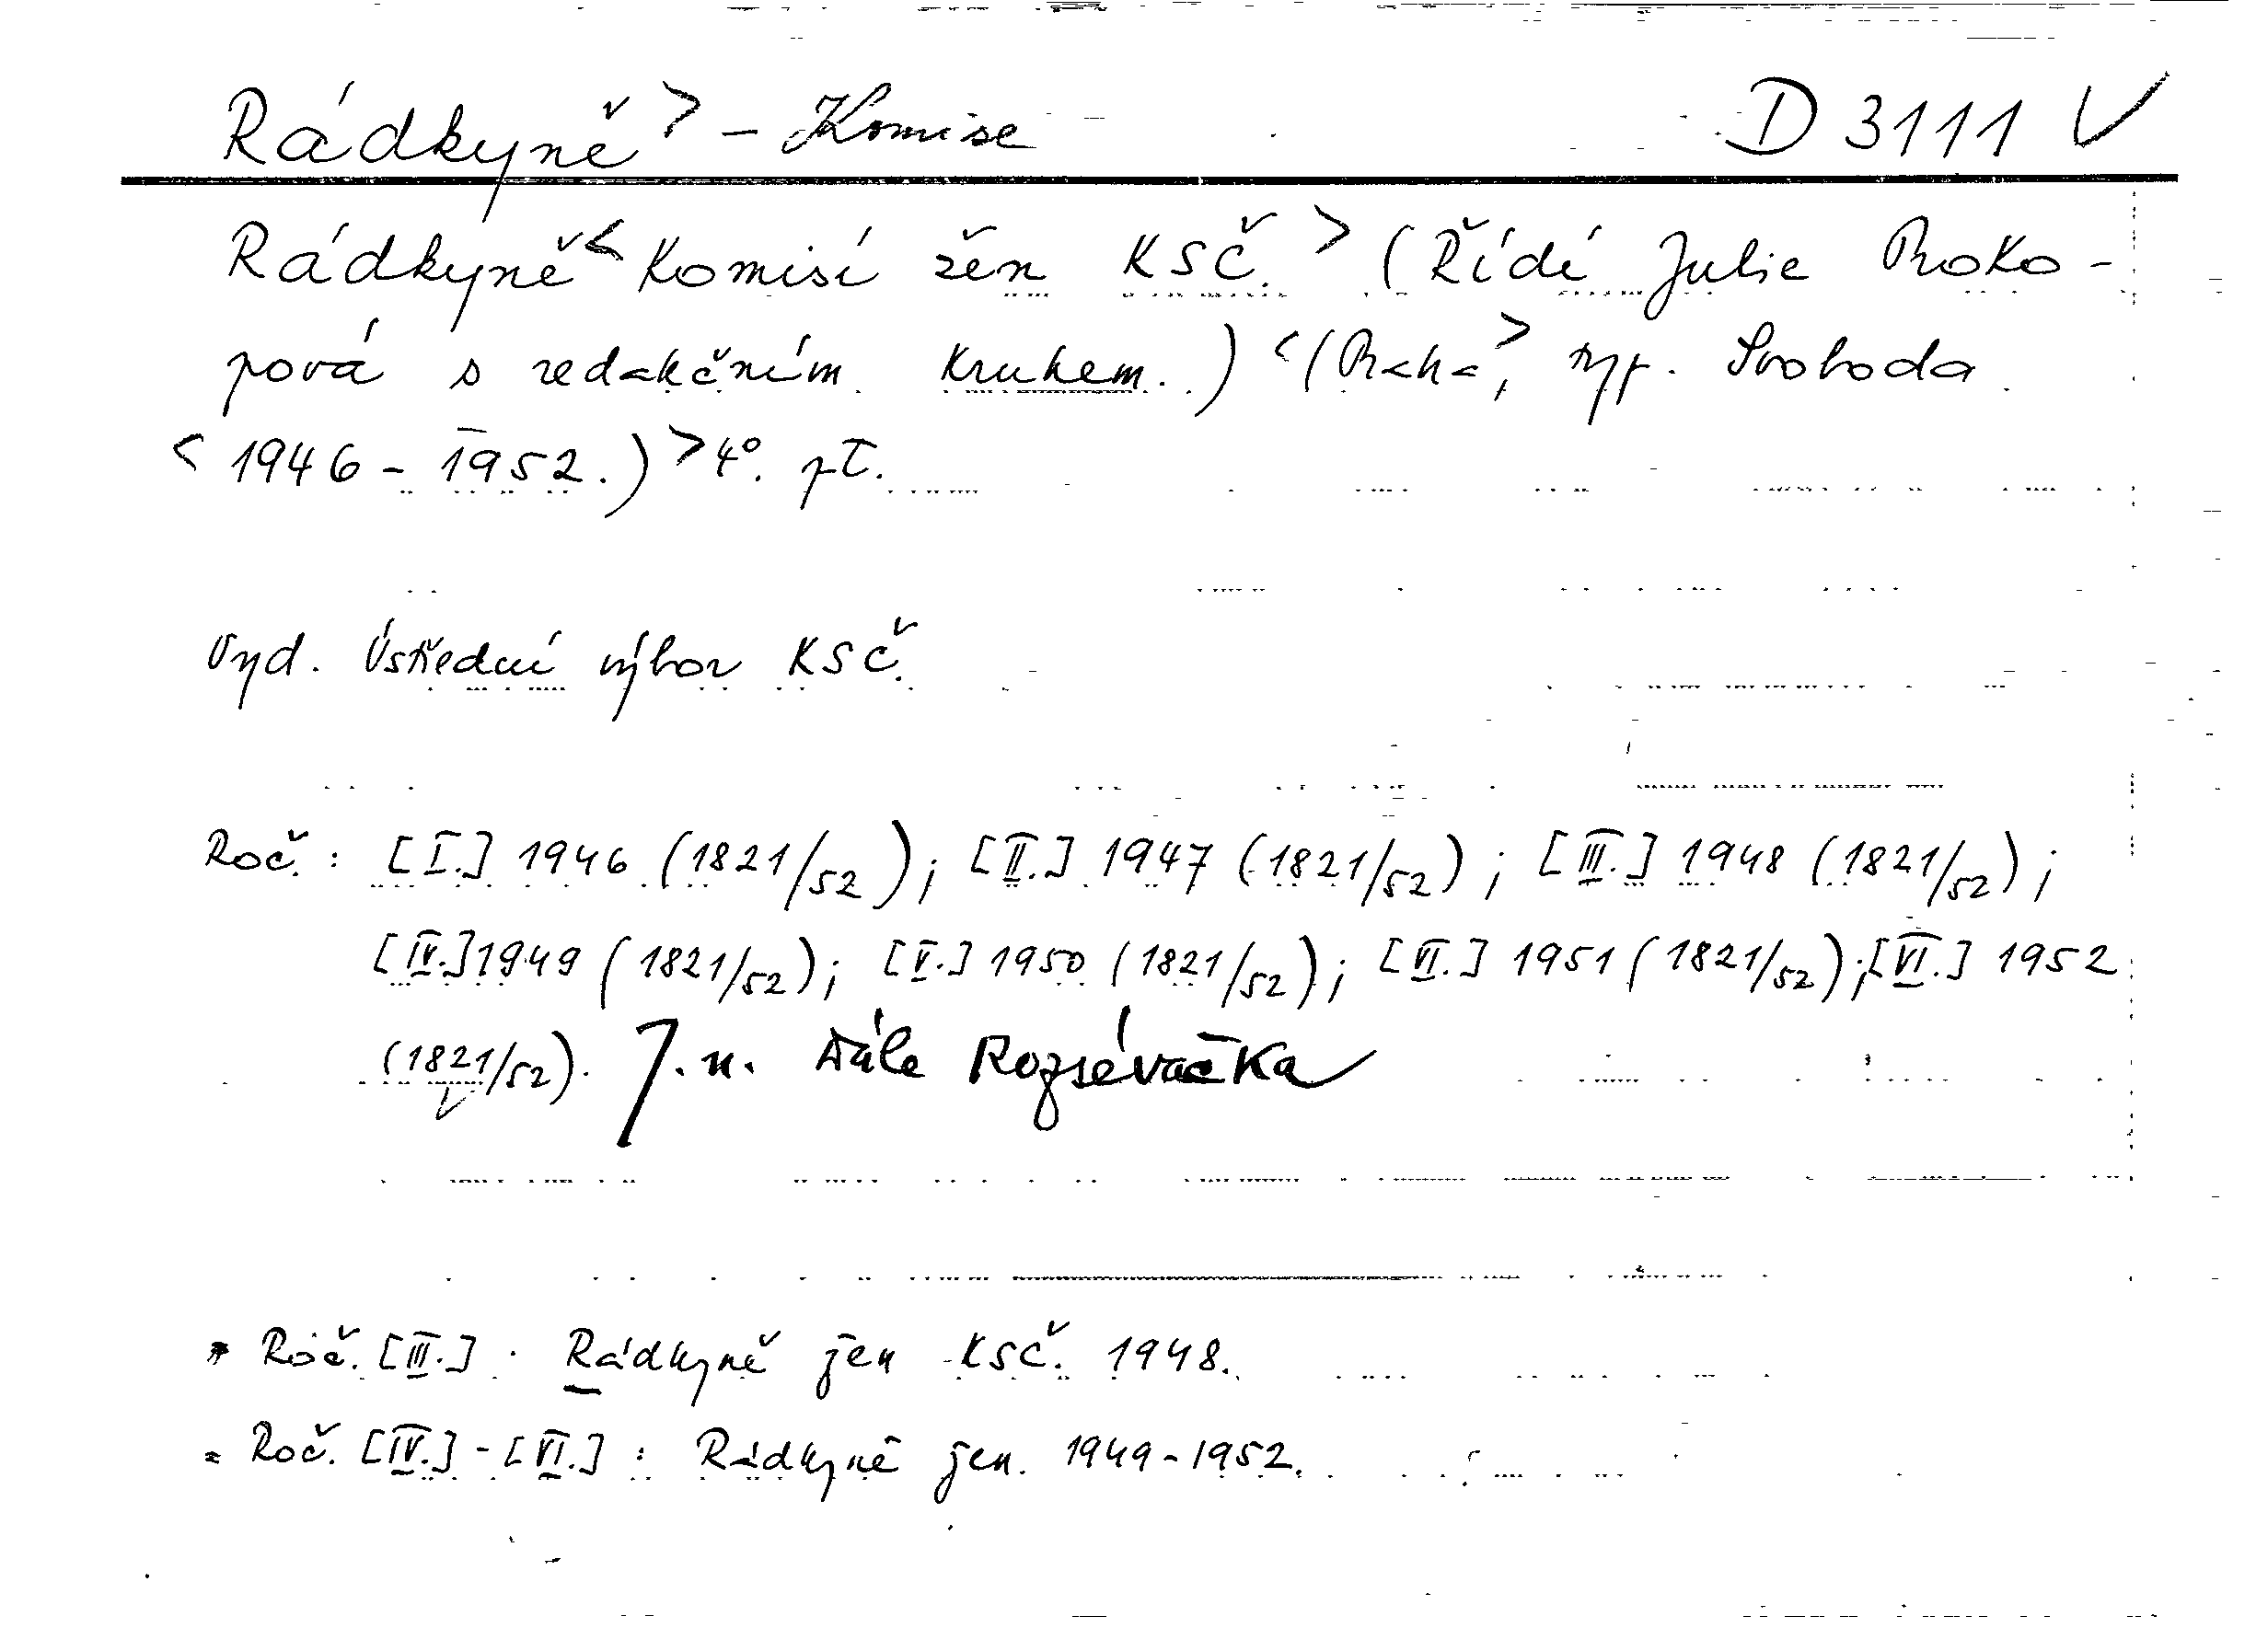 Rádkyně > - Komise D 3111 V
Rádkyně < Komisí žen KSČ. > (Řídí Julie Proko-
pová s redakčním kruhem.) < (Praha, > typ. Svoboda
< 1946 - 1952.) > 4°. pt.
Vyd. Ústřední výbor KSČ.
Roč.: [I.] 1946 (1821/52); [II.] 1947 (1821/52); [III.] 1948 (1821/52);
[IV.] 1949 (1821/52); [V.] 1950 (1821/52); [VI.] 1951 (1821/52); [VI.] 1952
(1821/52). J. n. Dále Rozsévačka
* Roč. [III.] . Rádkyně jen KSČ. 1948.
= Roč. [IV.] - [VI.] : Rádkyně jen. 1949 - 1952.